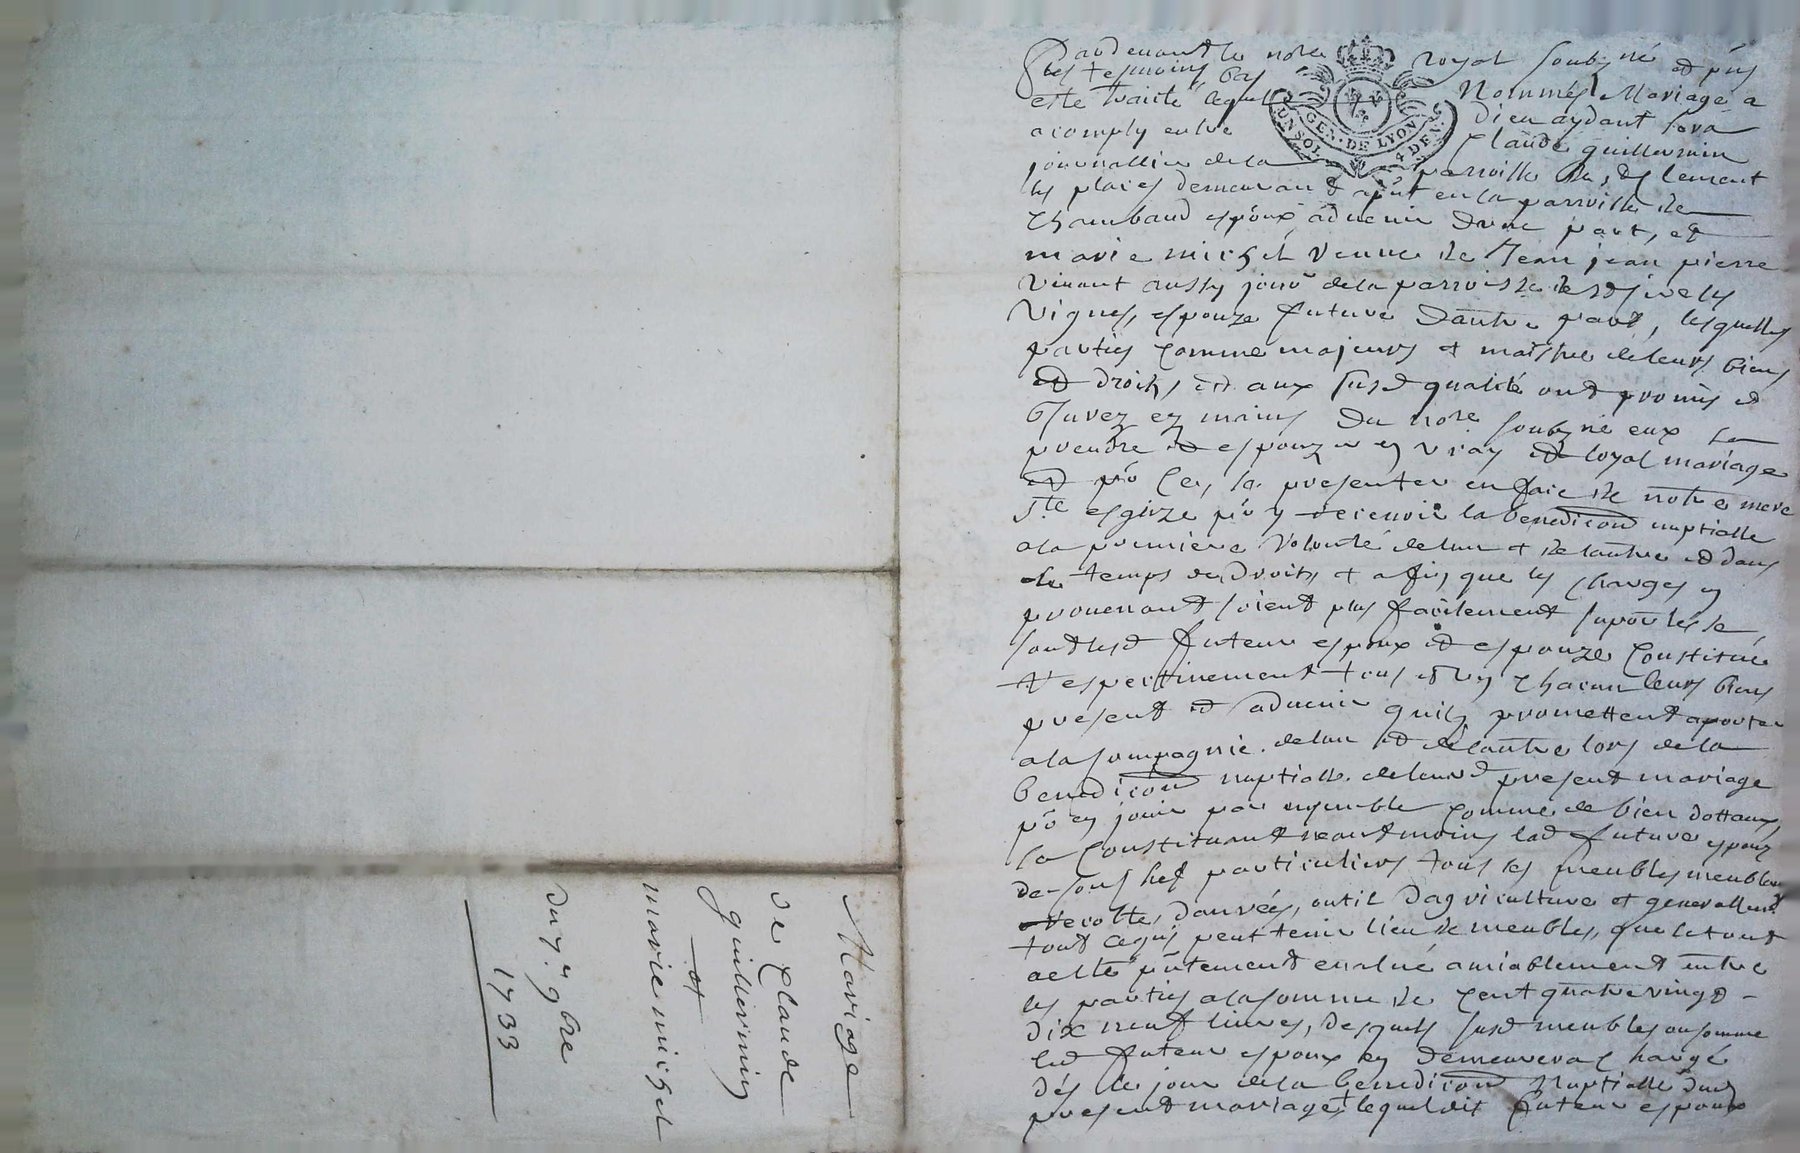 Pardevant le no.re royal soubz.né et p.ns
les tesmoins bas Nommés Mariage a
este traicte lequel Dieu aydant sera
acomply entre Claude guillermin
journallier de la parroisse de s.t Clement
les places demeurant a p.nt en la parroisse de
Chambaud espoux advenir dune part, et
marie michel veuve de jean pierre
vivant aussy jour.r de la parroisse de
vignes, espouze future dautre part, lesquelles
parties comme majeurs et maistre de leurs biens
et droits, et aux susd qualité ont promis et
ez mains du no.re soubz.né eux
prendre et espouzer en vray et loyal mariage
et po.r le presenter en face de notre mere
s.te esglize po.r y recevoir la benediction nuptialle
a la premiere volonté de lun et de lautre et dans
le temps de Droits, et affin que les charges en
provenant soient plus facilement suportés se
sont lesd futeur espoux et espouze Constitué
respectivement tous et un chacun leurs biens
present et advenir quils promettent aporter
a la Compagnie de lun et de lautre lors de la
benediction nuptialle de leurd present mariage
po.r en jouir par ensemble comme de bien dottaux,
se Constituant neantmoins lad future espouze
de son chef particuliers tous les meubles meublans
recolte, danrées, outil Dagriculture et generallem.t
tout ce qui peut tenir lieu de meubles, que le tout
a esté p.ntement evalué amiablement entre
les parties a la somme de Cent quatre vingt
dix neuf livres, desquels susd meubles ou somme
led futeur espoux en demeurera Chargé
dés le jour de la benediction Nuptialle dud
present mariage, lequel dit futeur espoux
Mariage
de Claude
guillermin
et
marie michel
Du 7.e 9bre
1733
GEN. DE LYON
UN SOL
4 DEN.